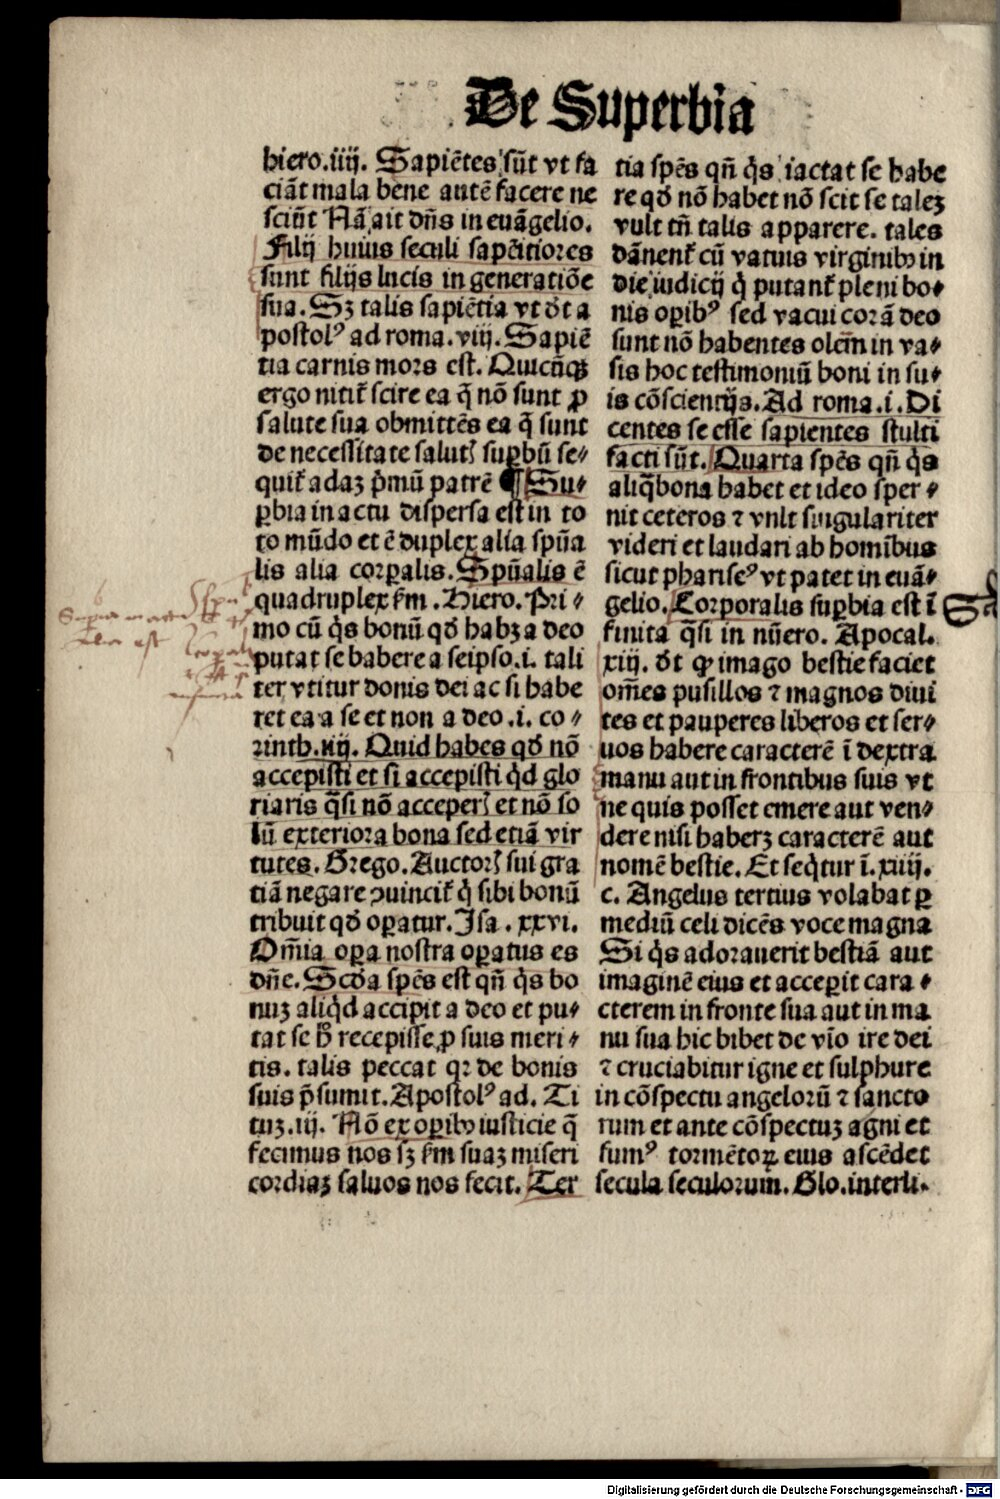 De Superbia
hiero.iiij. Sapiẽtes sũt vt fa
ciãt mala bene autẽ facere ne
sciũt Nã ait dñs in euãgelio.
Filij huius seculi sapẽtiores
sunt filijs lucis in generatiõe
sua. Sȝ talis sapiẽtia vt dt a
postolꝰ ad roma.viij. Sapiẽ
tia carnis mors est. Quicũqꝫ
ergo nitit̃ scire ea q̃ nõ sunt ꝓ
salute sua obmittẽs ea q̃ sunt
de necessitate salutꝭ suꝑbũ se⸗
quit̃ adaȝ p̃mũ patrẽ ¶ Su⸗
ꝑbia in actu dispersa est in to
to mũdo et ẽ duplex alia spũa
lis alia corꝑalis. Spũalis ẽ
quadruplex ẜm. Hiero. Pri⸗
mo cũ q̇s bonũ qd̓ habȝ a deo
putat se habere a seipso.i. tali
ter vtitur donis dei ac si habe
ret ea a se et non a deo.i. co⸗
rinth.iiij. Quid habes qd̓ nõ
accepisti et si accepisti q̇d glo
riaris q̃si nõ acceperꝭ et nõ so
lũ exteriora bona sed etiã vir
tutes. Grego. Auctorꝭ sui gra
tiã negare ꝯuincit̃ q̇ sibi bonũ
tribuit qd̓ oꝑatur. Isa.xxvi.
Om̃ia oꝑa nostra oꝑatus es
dñe. Scd̓a spẽs est qñ q̇s bo
nuȝ aliq̇d accipit a deo et pu⸗
tat se h̓ recepisse ꝓ suis meri⸗
tis. talis peccat qꝛ de bonis
suis p̃sumit. Apostolꝰ ad. Ti
tuȝ.iij. Nõ ex oꝑibꝰ iusticie q̃
fecimus nos sȝ ẜm suaȝ miseri
cordiaȝ saluos nos fecit. Ter
tia spẽs qñ q̇s iactat se habe
re qd̓ nõ habet nõ scit se taleȝ
vult tñ talis apparere. tales
dãnent̃ cũ vatuis virginibꝰ in
die iudicij q̇ putant̃ pleni bo⸗
nis oꝑibꝰ sed vacui corã deo
sunt nõ habentes olem̃ in va⸗
sis hoc testimoniũ boni in su⸗
is cõscientijs. Ad roma.i. Di
centes se esse sapientes stulti
facti sũt. Quarta spẽs qñ q̇s
aliq̃ bona habet et ideo sper⸗
nit ceteros ⁊ vnlt singulariter
videri et laudari ab homĩbus
sicut phariseꝰ vt patet in euã⸗
gelio. Corporalis suꝑbia est ĩ
finita q̃si in nũero. Apocal.
xiij. dt ꝙ imago bestie faciet
om̃es pusillos ⁊ magnos diui
tes et pauperes liberos et ser⸗
uos habere caracterẽ ĩ dextra
manu aut in frontibus suis vt
ne quis posset emere aut ven⸗
dere nisi haberȝ caracterẽ aut
nomẽ bestie. Et seq̇tur ĩ.xiiij.
c. Angelus tertius volabat ꝑ
mediũ celi dicẽs voce magna
Si q̇s adorauerit bestiã aut
imaginẽ eius et acceꝑit cara⸗
cterem in fronte sua aut in ma
nu sua hic bibet de vĩo ire dei
⁊ cruciabitur igne et sulphure
in cõspectu angelorũ ⁊ sancto
rum et ante cõspectuȝ agni et
fumꝰ tormẽtoꝝ eius ascẽdet
secula seculorum. Glo.interli.
Digitalisierung gefördert durch die Deutsche Forschungsgemeinschaft - DFG